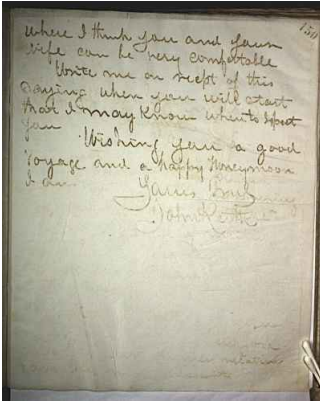 150
where I think you and your
wife can be very comfortable
Write me on rec'pt of this
Saying when you will start
that I may know when to Expect
you
Wishing you a good
Voyage and a happy Honeymoon
I am
Yours
John